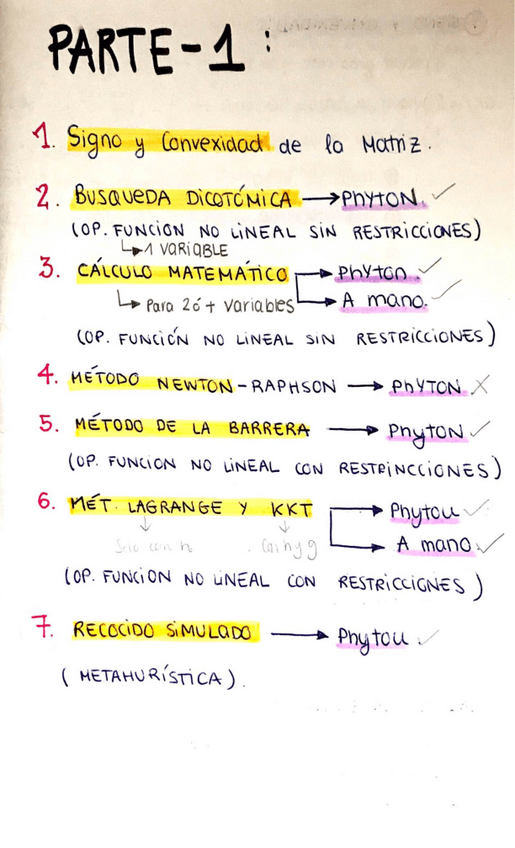 PARTE-1:
1. Signo y Convexidad de la Matriz.
2. BUSQUEDA DICOTÓMICA → PhYTON. ✓
(OP. FUNCIÓN NO LINEAL SIN RESTRICCIONES)
↳ 1 VARIABLE
3. CÁLCULO MATEMÁTICO → PhYton. ✓
↳ Para 2 ó + variables → A mano. ✓
(OP. FUNCIÓN NO LINEAL SIN RESTRICCIONES)
4. MÉTODO NEWTON-RAPHSON → PhYTON X
5. MÉTODO DE LA BARRERA → PhytoN ✓
(OP. FUNCION NO LINEAL CON RESTRINCCIONES)
6. MÉT. LAGRANGE Y KKT → Phytou ✓
→ A mano. ✓
Solo con h. Con h y g
(OP. FUNCIÓN NO LINEAL CON RESTRICCIONES)
7. RECOCIDO SIMULADO → Phytou ✓
(METAHURÍSTICA).